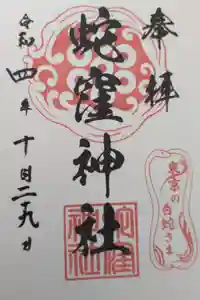 奉拝
蛇窪神社
令和四年十月二十九日
蛇窪神社